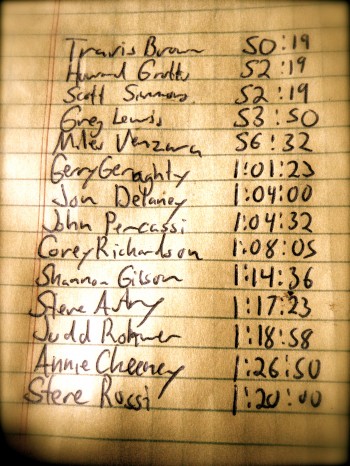 Travis Brown 50:19
Howard Grotts 52:19
Scott Simmons 52:19
Greg Lewis 53:50
Miles Venzara 56:32
Gerry Geraghty 1:01:23
Jon Delaney 1:04:00
John Percassi 1:04:32
Corey Richardson 1:08:05
Shannon Gilson 1:14:36
Steve 1:17:23
Judd Rohwer 1:18:58
Annie Cheeney 1:26:50
Steve Rossi 1:20:00